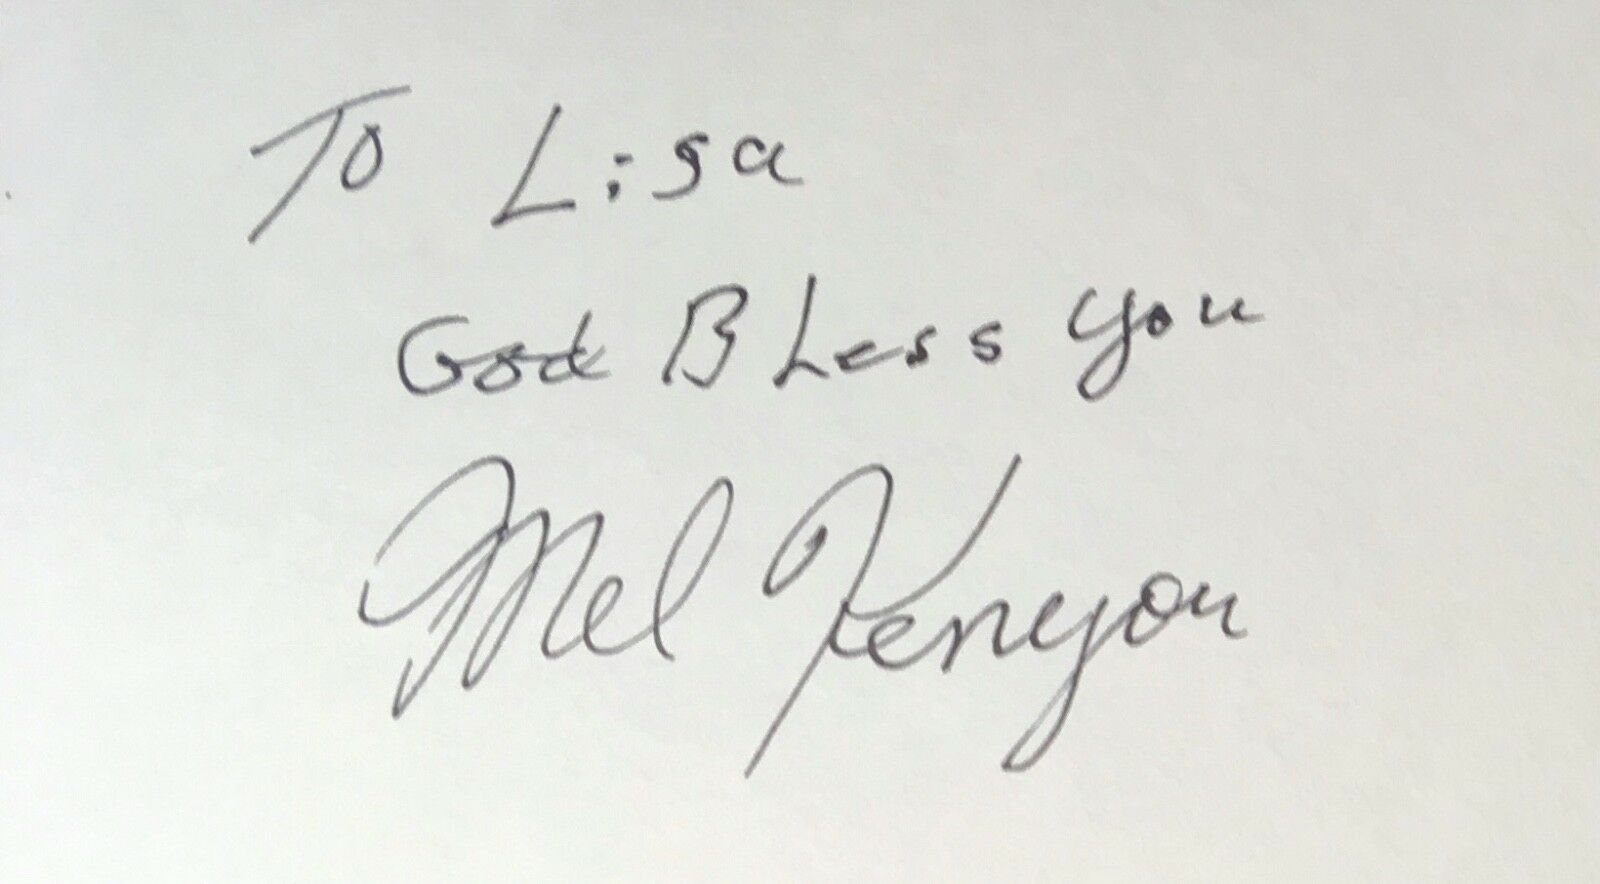 To Lisa
God Bless you
Mel Kenyon